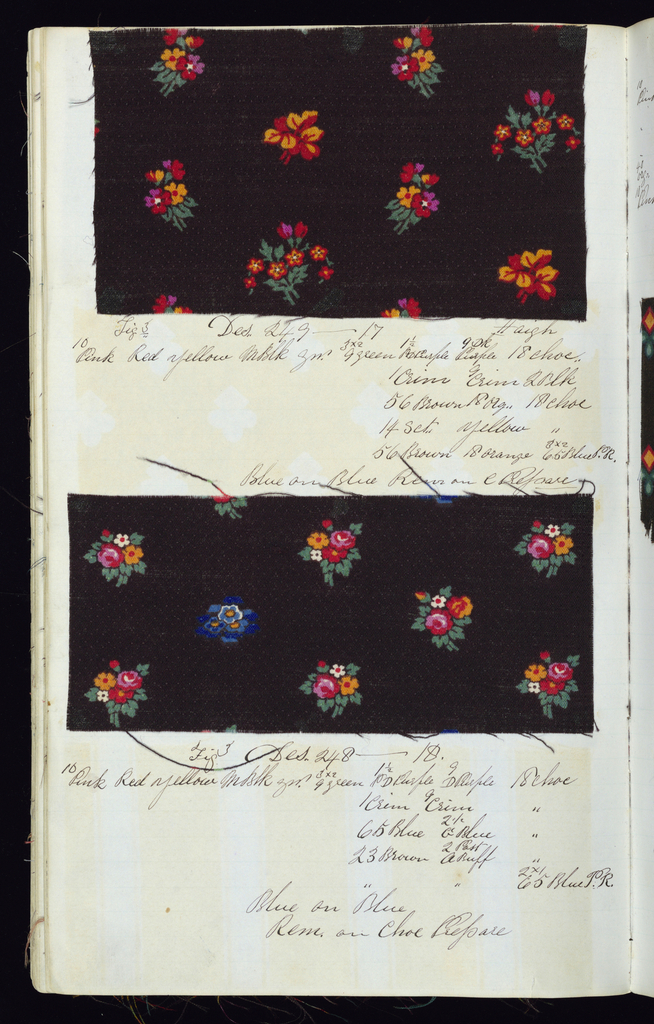 Fig 3 Des. 249 — 17 Haigh
10 Pink Red yellow MBlk gn. 3x2 9 green 1½ Purple Purple 18 choc.
1 Crim 9 Crim 2 Blk
56 Brown 18 Og. 18 choc
14 Sct. yellow "
56 Brown 18 orange 8x2 65 Blue P.R.
Blue on Blue Rem on C Prepare
Fig 3 Des. 248 — 18.
10 Pink Red yellow MBlk gn. 8x2 9 green 1½ PD Purple 9 D Purple 18 choc
1 Crim 9 Crim "
65 Blue 2½ Blue "
23 Brown 2 Buff "
" " 2x1 65 Blue P.R.
Blue on Blue
Rem. on Choc Prepare